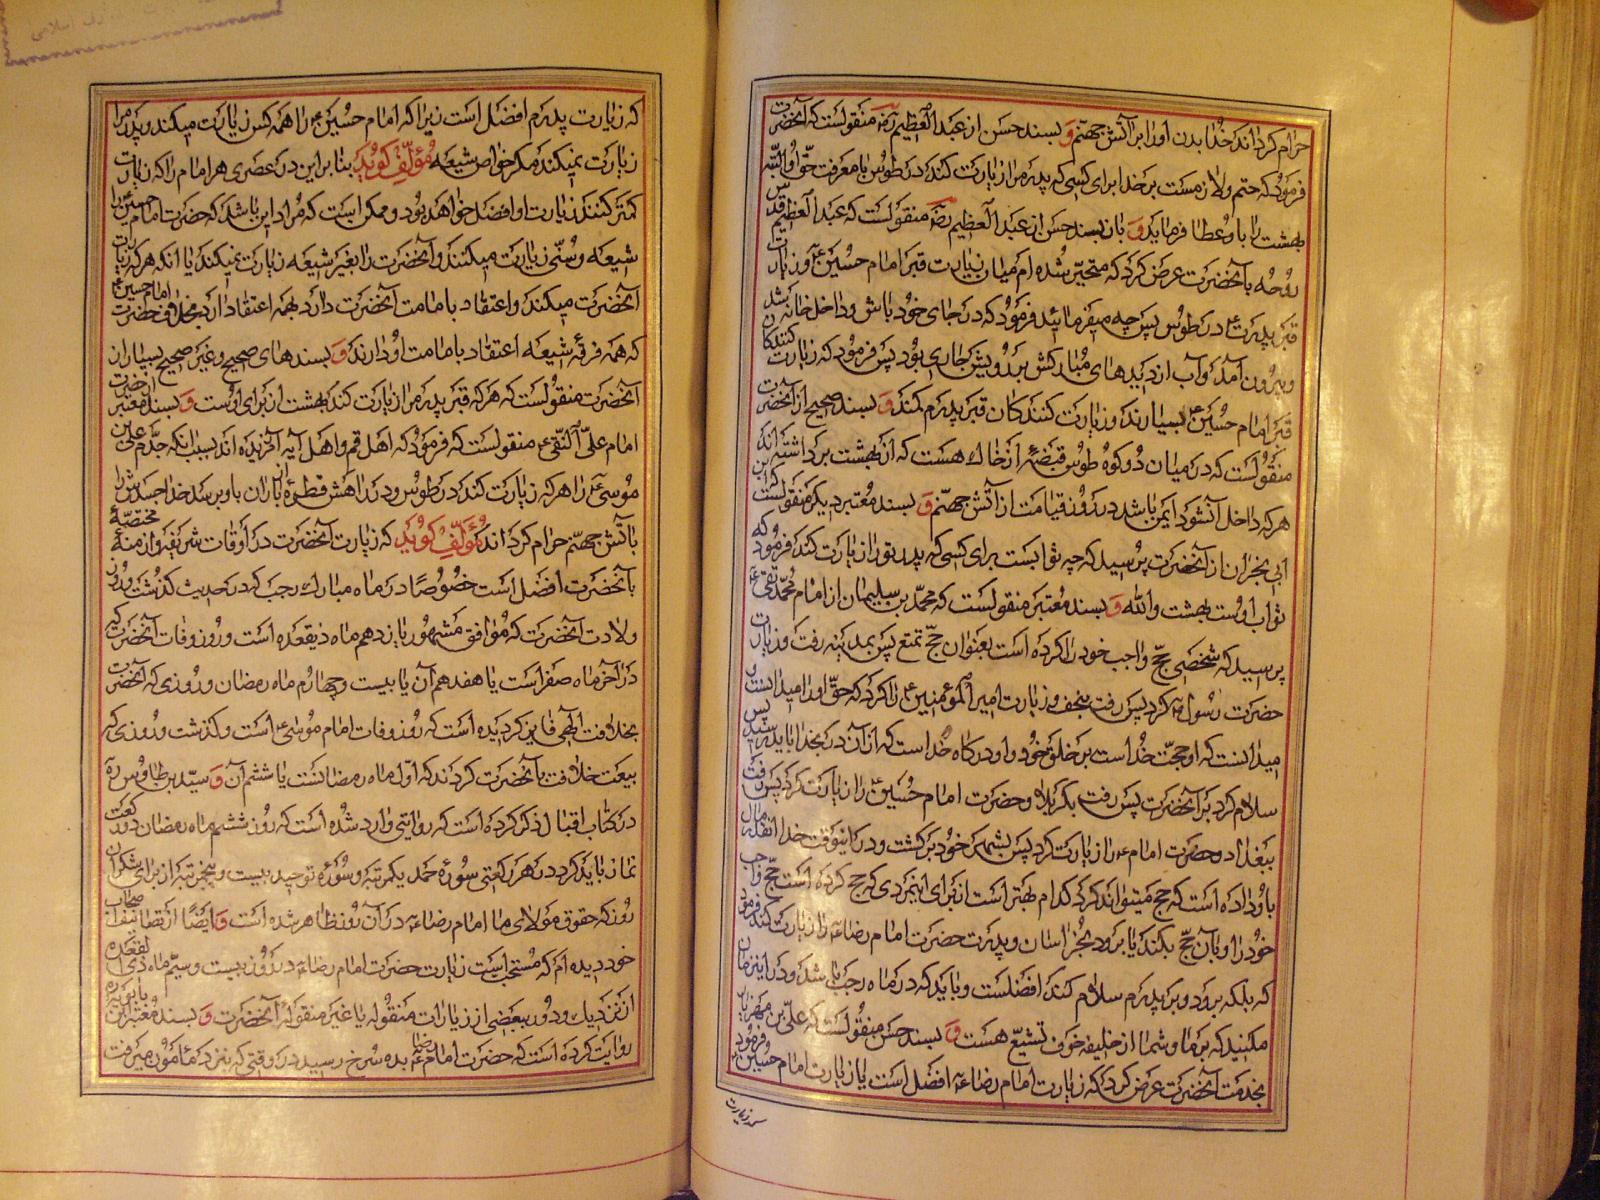 حرام گرداند خدا بدن او را بر آتش جهنم و بسند حسن از عبد العظیم رضه منقولست که آنحضرت
فرمود که حتم و لازمست بر خدا برای کسی که پدر مرا زیارت کند در طوس با معرفت حق او البته
بهشت را باو عطا فرماید و بان بسند حسن از عبد العظیم رضه منقولست که عبد العظیم قدس
روحه بآنحضرت عرض کرد که متحیر شده ام میان زیارت قبر امام حسین ع و زیارت
قبر پدرت ع در طوس پس چه میفرمائید فرمود که در جای خود باش و داخل خانه شد
و بیرون آمد و آب از دیدهای مبارکش بر رویش جاری بود پس فرمود که زیارت کنندگان
قبر امام حسین ع بسیارند و زیارت کنندکان قبر پدرم کمند و بسند صحیح از آنحضرت
منقولست که در میان دو کوه طوس قبضهٔ از خاك هست که از بهشت برداشته اند
هر که داخل آنشود ایمن باشد در روز قیامت از آتش جهنم و بسند معتبر دیگر منقولست که ابن
ابی نجران از آنحضرت پرسید که چه ثوابست برای کسی که پدر تو را زیارت کند فرمود که
ثواب اوست بهشت والله و بسند معتبر منقولست که محمد بن سلیمان از امام محمد تقی ع
پرسید که شخصی حج واجب خود را کرده است بعنوان حج تمتع پس بمدینه رفت و زیارت
حضرت رسول ص کرد پس رفت بنجف و زیارت امیر المؤمنین ع را کرد که حق او را میدانست و
میدانست که او حجت خداست بر خلق خود و او درگاه خداست که از آن در بخدا باید رسید پس
سلام کرد بر آنحضرت پس رفت بکربلا و حضرت امام حسین ع را زیارت کرد پس رفت
ببغداد و حضرت امام ع را زیارت کرد پس بشهر خود برگشت و در اینوقت خدا انقدر مال
باو داده است که حج میتواند کرد کدام بهتر است از برای اینمردی که حج کرده است حج واجب
خود را و بآن حج بکند یا برود بخراسان و پدرت حضرت امام رضا ع را زیارت کند فرمود
که بلکه برود و بر پدرم سلام کند افضلست و باید که در ماه رجب باشد و در این زمان
مکنید که بر ما و شما از خلیفه خوف تشنیع هست و بسند حسن منقولست که علی بن مهزیار
بخدمت آنحضرت عرض کرد که زیارت امام رضا ع افضل است یا زیارت امام حسین ع فرمود
که زیارت
که زیارت پدرم افضل است زیرا که امام حسین ع را همه کس زیارت میکند و پدر مرا
زیارت نمیکند مگر خواص شیعه مؤلف گوید بنا بر این در عصری هر امام را که زیارت
کمتر کنند زیارت او افضل خواهد بود و ممکن است که مراد این باشد که حضرت امام حسین را
شیعه و سنی زیارت میکنند و آنحضرت را بغیر شیعه زیارت نمیکند یا آنکه هر که زیارت
آنحضرت میکند و اعتقاد بامامت آنحضرت دارد بهمه اعتقاد دارد بخلاف حضرت امام حسین ع
که همه فرقهٔ شیعه اعتقاد بامامت او دارند و بسندهای صحیح و غیر صحیح بسیار از
آنحضرت منقولست که هر که قبر پدر مرا زیارت کند بهشت از برای اوست و بسند معتبر از حضرت
امام علی النقی ع منقولست که فرمود که اهل قم و اهل آبه آمرزیده اند بسبب انکه جدم علی بن
موسی ع را هر که زیارت کند در طوس و در راهش قطرهٔ از باران باو برسد خدا جسدش را
بآتش جهنم حرام گرداند مؤلف گوید که زیارت آنحضرت در اوقات شریفه و ازمنهٔ مختصهٔ
بآنحضرت افضل است خصوصا در ماه مبارك رجب که در حدیث گذشت و روز
ولادت آنحضرت که موافق مشهور یازدهم ماه ذیقعده است و روز وفات آنحضرت که
در آخر ماه صفر است یا هفدهم آن یا بیست و چهارم ماه رمضان و روزی که آنحضرت
بخلافت الهی فایز گردیده است که روز وفات امام موسی ع است و گذشت و روزی که
بیعت خلافت بآنحضرت کردند که اول ماه رمضانست یا ششم آن و سید بن طاوس ره
در کتاب اقبال ذکر کرده است که روایتی وارد شده است که روز ششم ماه رمضان دو رکعت
نماز باید کرد در هر رکعتی سورهٔ حمد یکمرتبه و سورهٔ توحید بیست و پنجمرتبه از برای شکر آن
روز که حقوق مولای ما امام رضا ع در آن روز ظاهر شده است و ایضا از تصانیف اصحاب
خود دیده ام که مستحب است زیارت حضرت امام رضا ع در روز بیست و سیم ماه ذی القعده
از نزدیك و دور ببعضی از زیارات منقوله یا غیر منقوله آنحضرت و بسند معتبر ابن بابویه ره
روایت کرده است که حضرت امام رضا ع بده سرخ رسید در وقتی که بنزد مأمون میرفت